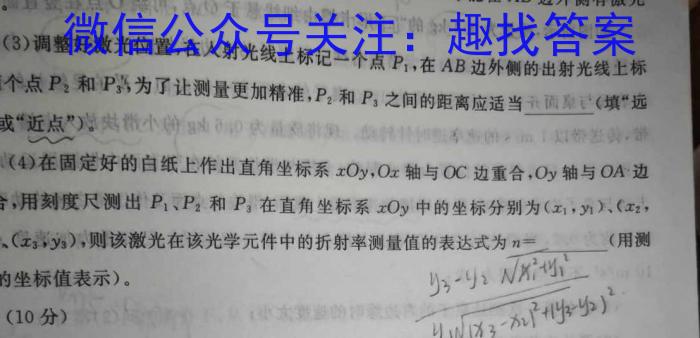 微信公众号关注：趣找答案
(3)调整好激光位置,在入射光线上标记一个点 P₁,在 AB 边外侧的出射光线上标
个点 P₂ 和 P₃,为了让测量更加精准,P₂ 和 P₃ 之间的距离应适当____(填“远
或“近点”)。
(4)在固定好的白纸上作出直角坐标系 xOy,Ox 轴与 OC 边重合,Oy 轴与 OA 边
合,用刻度尺测出 P₁、P₂ 和 P₃ 在直角坐标系 xOy 中的坐标分别为(x₁,y₁)、(x₂,
、(x₃,y₃),则该激光在该光学元件中的折射率测量值的表达式为 n=____(用测
的坐标值表示)。
y₃-y₂ √x₁²+y₁²
y₁√(x₃-x₂)²+(y₃-y₂)²
(10 分)